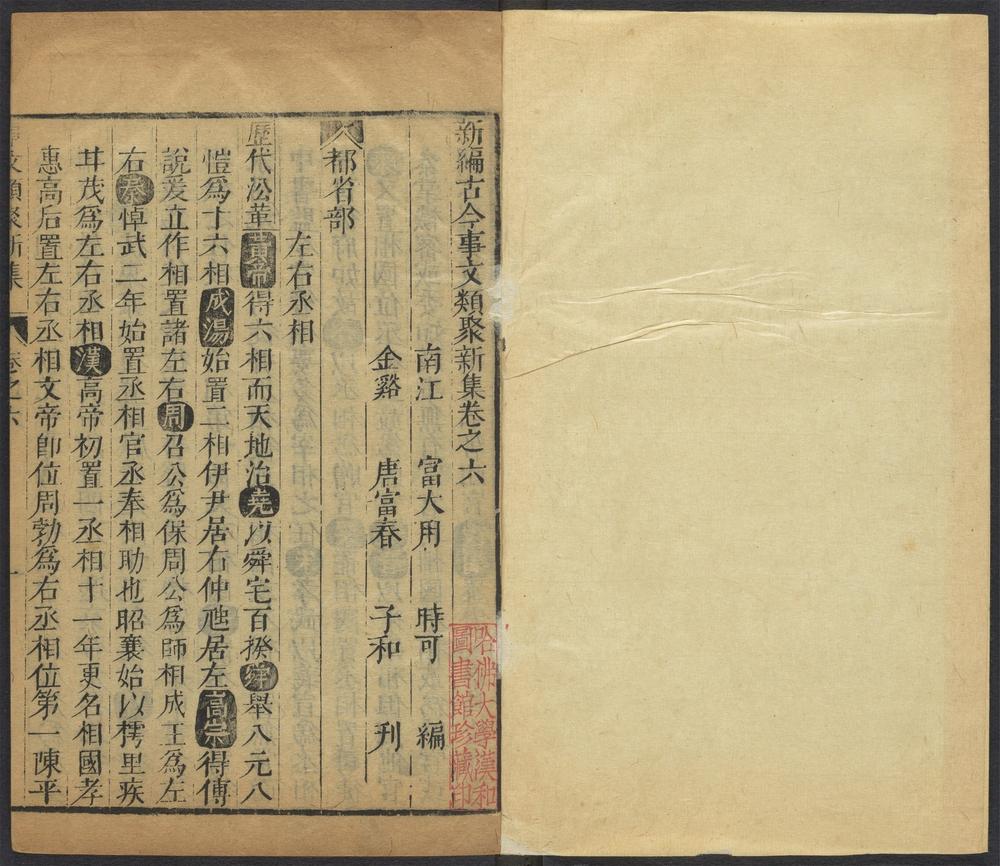 新編古今事文類聚新集卷之六
南江 富大用 時可 編
金谿 唐富春 子和 刊
都省部
左右丞相
歷代沿革黃帝得六相而天地治堯以舜宅百揆舜舉八元八
愷爲十六相成湯始置二相伊尹居右仲虺居左高宗得傅
說爰立作相置諸左右周召公爲保周公爲師相成王爲左
右秦悼武二年始置丞相官丞奉相助也昭襄始以樗里疾
甘茂爲左右丞相漢高帝初置一丞相十一年更名相國孝
惠高后置左右丞相文帝卽位周勃爲右丞相位第一陳平
文類聚新集 卷之六 一
哈佛大學漢和
圖書館珍藏印